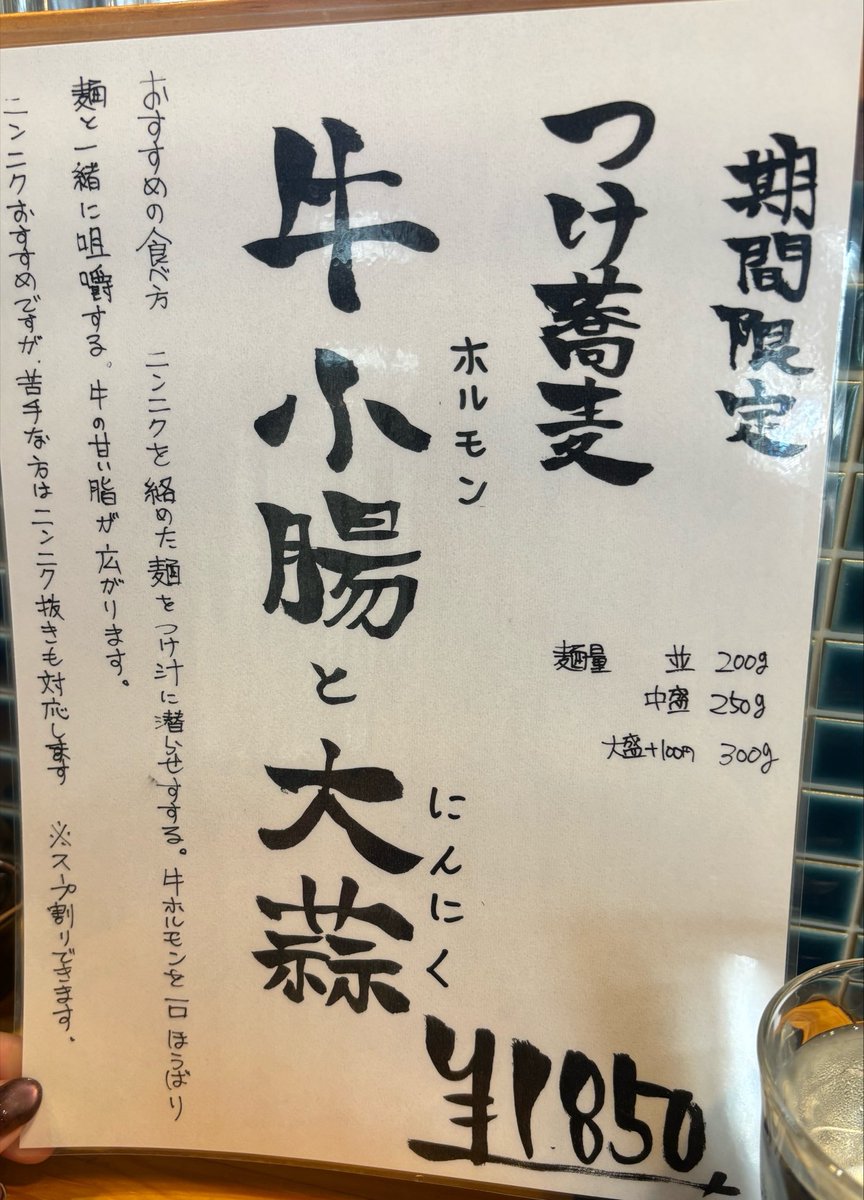 期間限定
つけ蕎麦
麺量 並 200g
中盛 250g
大盛+100円 300g
ホルモン
にんにく
牛小腸と大蒜
¥1850
おすすめの食べ方 ニンニクを絡めた麺をつけ汁に潜らせすする。牛ホルモンを一口ほうばり
麺と一緒に咀嚼する。牛の甘い脂が広がります。
ニンニクおすすめですが、苦手な方はニンニク抜きも対応します ※スープ割りできます。